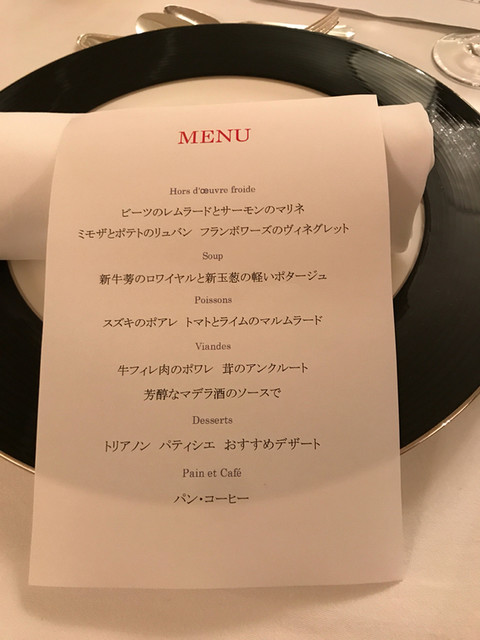 MENU
Hors d'œuvre froide
ビーツのレムラードとサーモンのマリネ
ミモザとポテトのリュバン フランボワーズのヴィネグレット
Soup
新牛蒡のロワイヤルと新玉葱の軽いポタージュ
Poissons
スズキのポアレ トマトとライムのマルムラード
Viandes
牛フィレ肉のポワレ 茸のアンクルート
芳醇なマデラ酒のソースで
Desserts
トリアノン パティシエ おすすめデザート
Pain et Café
パン・コーヒー